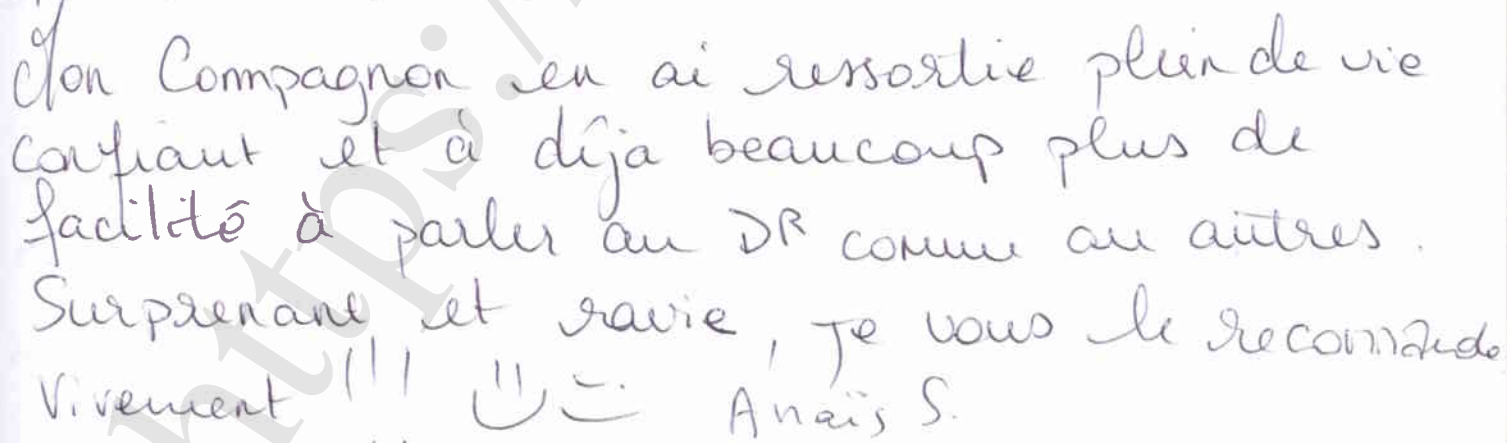 Mon Compagnon en ai ressortie plein de vie
confiant et à déja beaucoup plus de
facilité à parler au DR comme au autres.
Surprenant et ravie, je vous le recommande
Vivement !!! Anaïs S.
https:/